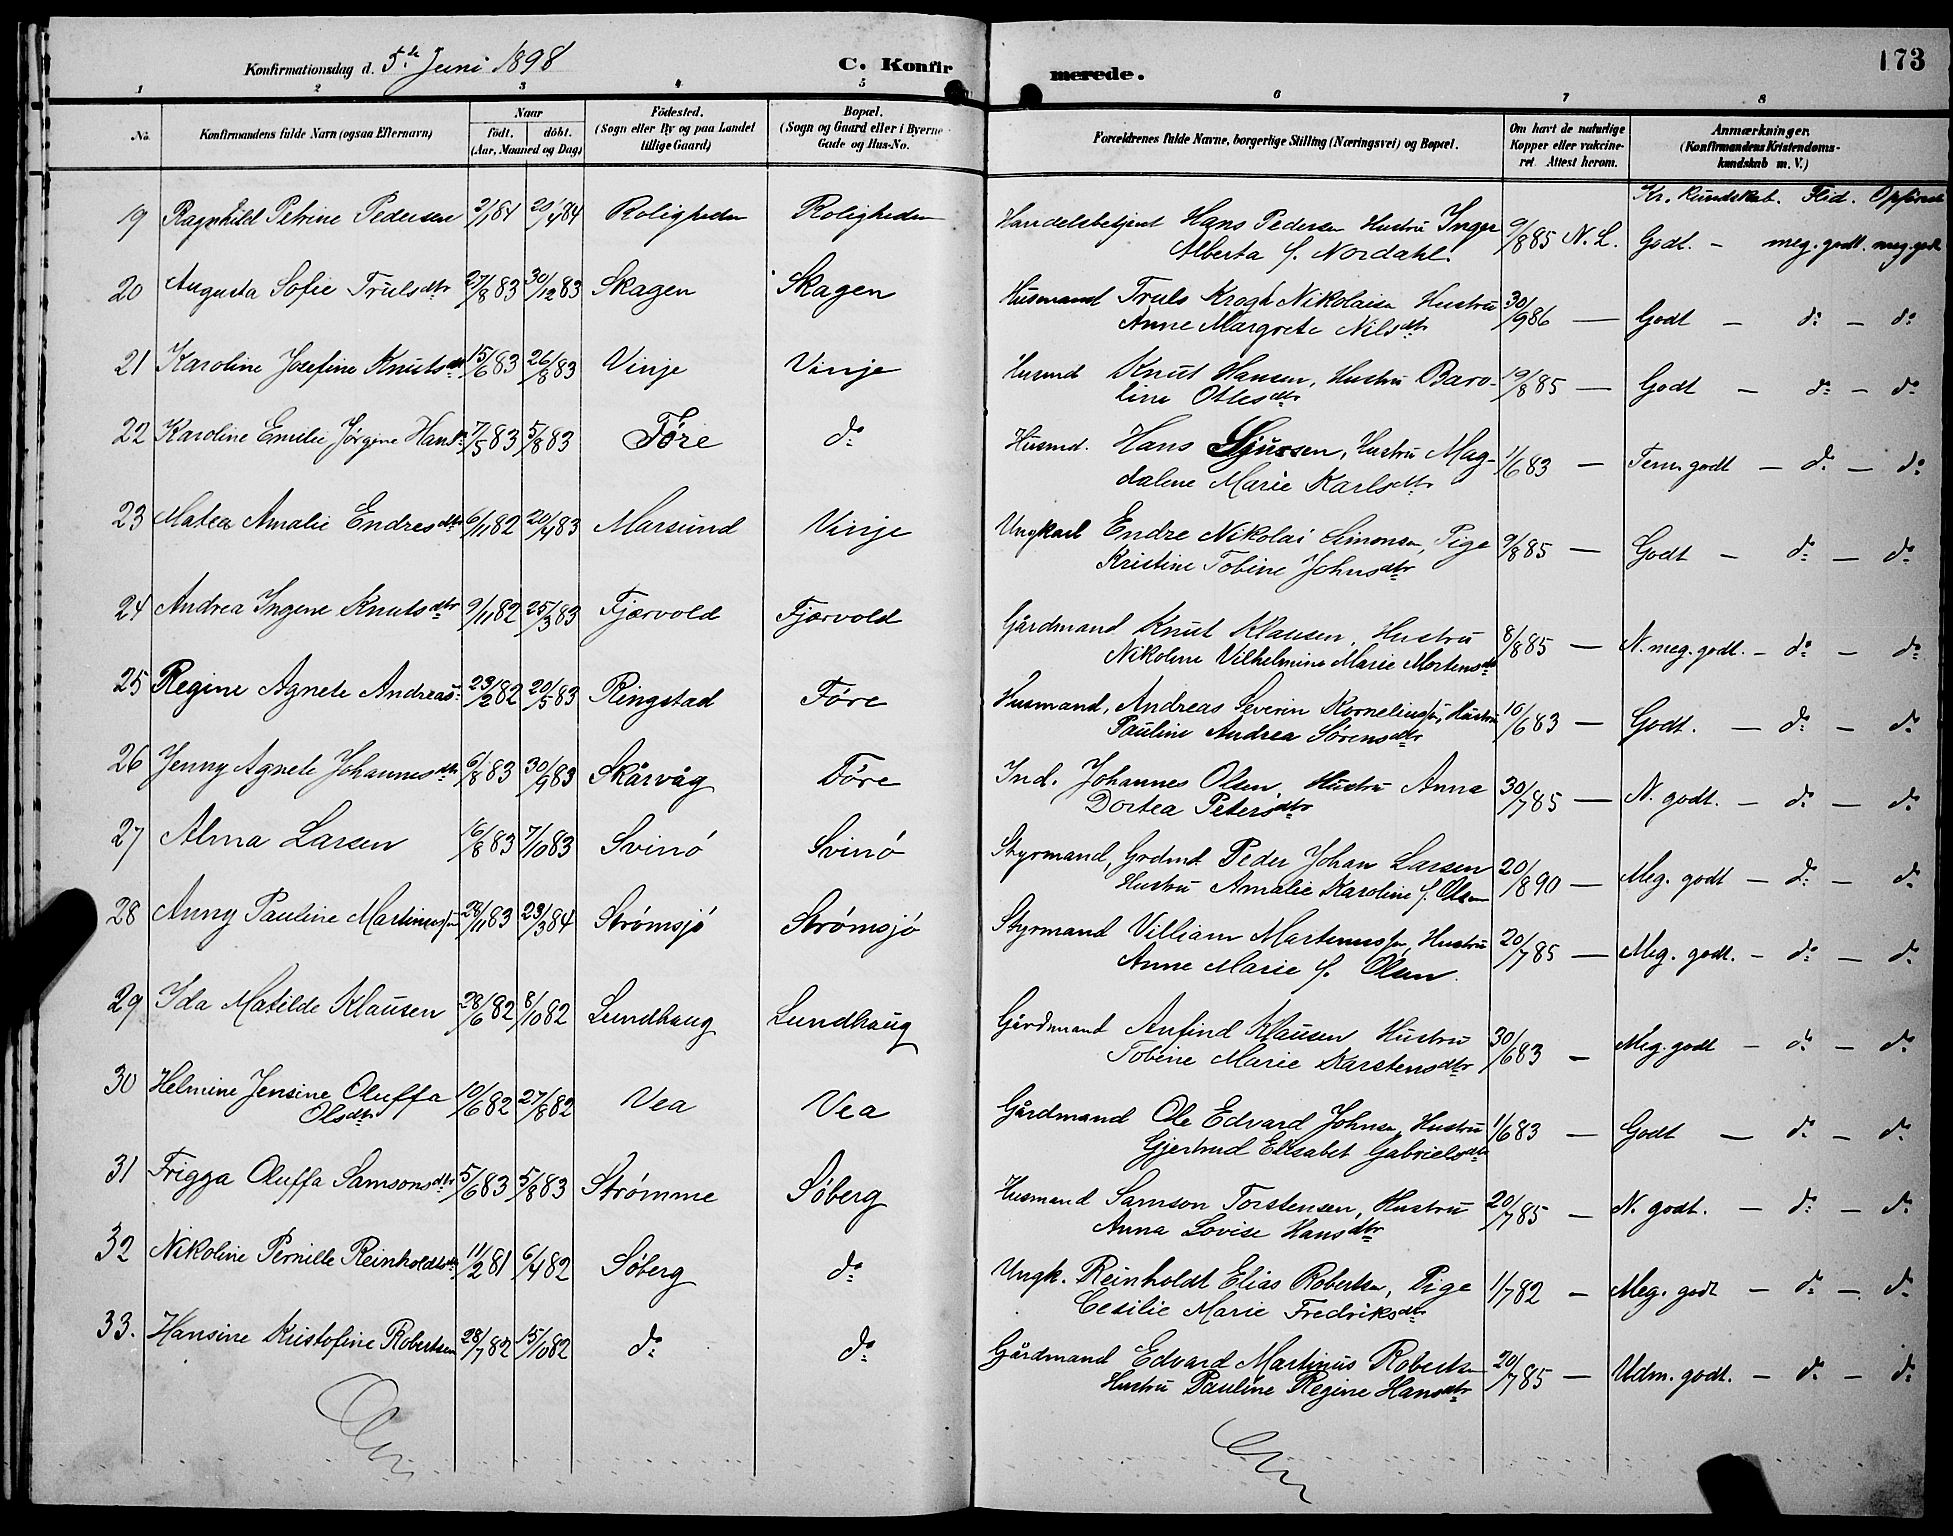 Konfirmationsdag d. 5te Juni 1898
C. Konfirmerede.
173
1 2 3 4 5 6 7 8
No.
Konfirmandens fulde Navn (ogsaa Efternavn)
Naar
födt. döbt.
(Aar, Maaned og Dag)
Födested.
(Sogn eller By og paa Landet
tillige Gaard)
Bopæl.
(Sogn og Gaard eller i Byerne
Gade og Hus-No.
Forældrenes fulde Navne, borgerlige Stilling (Næringsvei) og Bopæl.
Om havt de naturlige
Kopper eller vakcine-
ret. Attest herom.
Anmærkninger.
(Konfirmandens Kristendoms-
kundskab m. V.)
Kr. kundskab. Flid. Opførsel
19 Ragnhild Petrine Pedersen 2/1 84 20/4 84 Roligheden Roligheden Handelsbetjent Hans Pedersen Hustru Inger 9/8 85 N. L. Godt. - meg. godt. meg. godt
Alberta f. Nordahl.
20 Augusta Sofie Trulsdtr 27/8 83 30/12 83 Skagen Skagen Husmand Truls Krogh Nikolaisen Hustru 30/9 86 — Godt - do - do
Anne Margrete Nilsdtr
21 Karoline Josefine Knutsdtr 15/6 83 26/8 83 Vinje Vinje Husmd Knut Hansen, Hustru Baro- 19/8 85 — Godt - do - do
line Otlesdtr
22 Karoline Emilie Jørgine Hansdr 7/5 83 5/8 83 Føre do Husmd. Hans Sjursen, Hustru Mag- 1/6 83 — Tem. godt - do - do
dalene Marie Karlsdtr
23 Matea Amalie Endresdtr 6/11 82 20/4 83 Marsund Vinje Ungkarl Endre Nikolai Simonsen, Pige 9/8 85 — Godt - do - do
Kristine Tobine Johnsdtr
24 Andrea Ingine Knutsdtr 9/11 82 25/3 83 Fjærvold Fjærvold Gårdmand Knut Klausen, Hustru 8/8 85 — N. meg. godt. - do - do
Nikoline Vilhelmine Marie Mortensdtr
25 Regine Agnete Andreas 23/2 82 20/5 83 Ringstad Føre Husmand, Andreas Severin Korneliussen, Hustru 10/6 83 — Godt. - do - do
Pauline Andrea Sørensdtr
26 Jenny Agnete Johannesdtr 6/8 83 30/9 83 Skårvåg Føre Ind. Johannes Olsen Hustru Anna 30/7 85 — N. godt. - do - do
Dortea Petersdtr
27 Alma Larsen 16/8 83 7/10 83 Svinø Svinø Styrmand, Grdmd Peder Johan Larsen 20/8 90 — Meg. godt - do - do
Hustru Amalie Karoline f. Olsen
28 Anny Pauline Martinussen 28/11 83 23/3 84 Strømsjø Strømsjø Styrmand Villiam Martinussen, Hustru 20/7 85 — Meg. godt. - do - do
Anne Marie f. Olsen.
29 Ida Matilde Klausen 28/6 82 8/10 82 Lundhaug Lundhaug Gårdmand Anfind Klausen Hustru 30/6 83 - Meg. godt - do - do
Tobine Marie Karstensdtr
30 Helmine Jensine Oluffa 10/6 82 27/8 82 Vea Vea Gårdmand Ole Edvard Johnsen, Hustru 1/6 83 — Godt - do - do
Olsdtr Gjertrud Elisabet Gabrielsdtr
31 Frigga Oluffa Samsonsdtr 5/6 83 5/8 83 Strømme Søberg Husmand Samson Torstensen, Hustru 20/7 85 - N. godt. - do - do
Anna Lovise Hansdtr
32 Nikoline Pernille Reinholdtsdtr 11/2 81 6/4 82 Søberg do Ungk. Reinholdt Elias Robertsen, Pige 1/7 82 - Meg. godt - do - do
Cesilie Marie Fredriksdtr
33. Hansine Kristofine Robertsen 28/7 82 15/10 82 do do Gårdmand Edvard Martinus Robertsen 20/7 85 — Udm. godt. - do - do
Hustru Pauline Regine Hansdtr